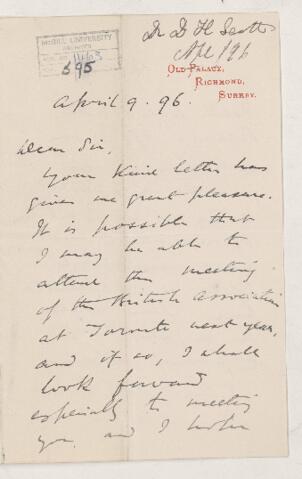 McGILL UNIVERSITY
ARCHIVES
ACC. NO. 1463
REF. 595
Dr D H Scott
Apl 196
OLD PALACE,
RICHMOND,
SURREY.
April 9. 96.
Dear Sir,
Your kind letter has
given me great pleasure.
It is possible that
I may be able to
attend the meeting
of the British Association
at Toronto next year,
and if so, I shall
look forward
especially to meeting
you, and I